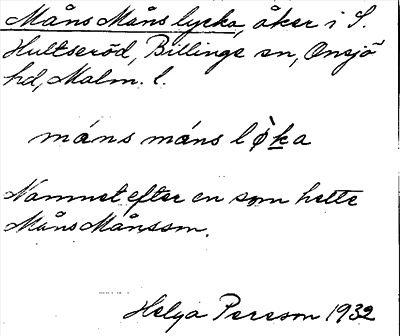 Måns Måns lycka, åker i S.
Hultseröd, Billinge sn, Onsjö
hd, Malm. l.
máns máns lø̀ka
Namnet efter en som hette
Måns Månsson.
Helga Persson 1932